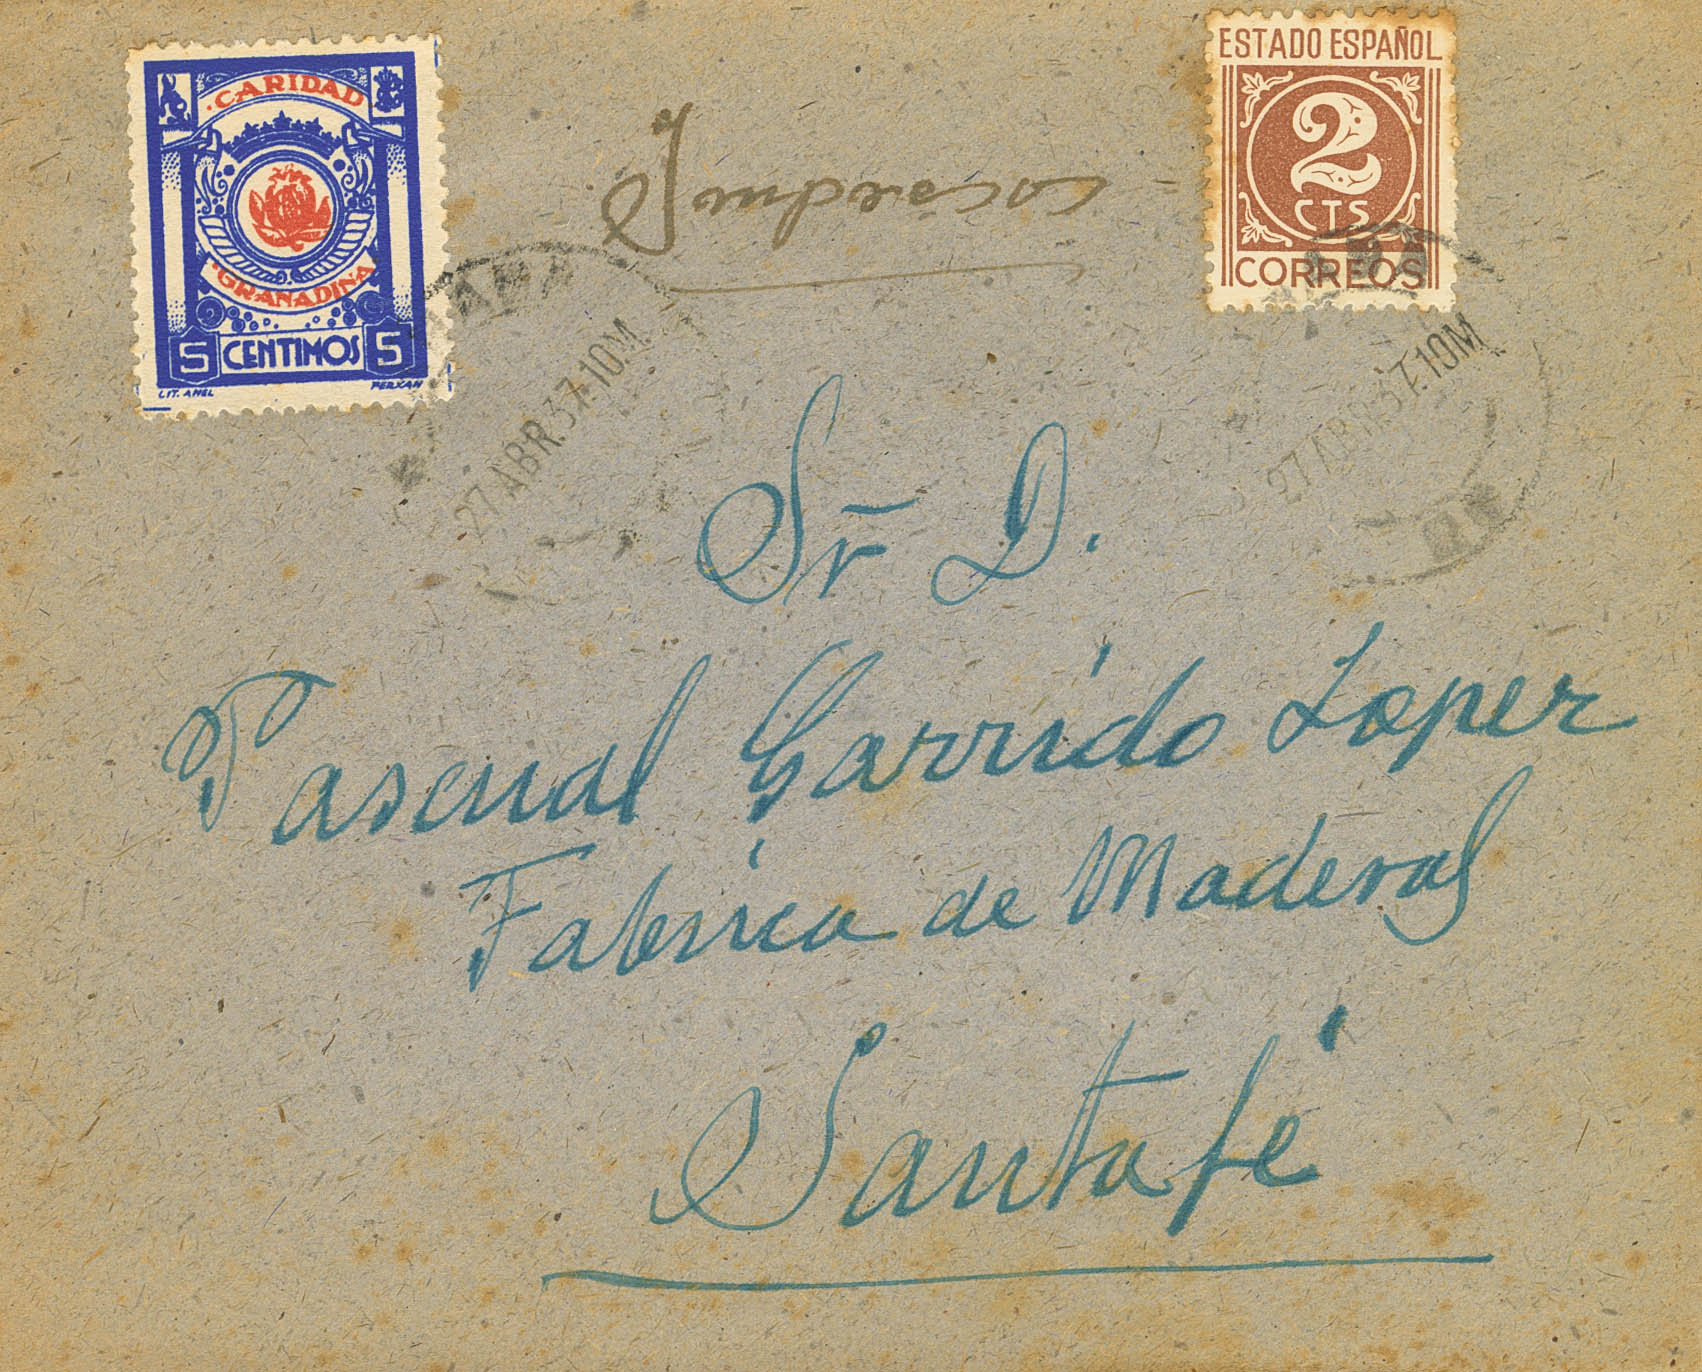 ·CARIDAD
·GRANADINA
5 CENTIMOS 5
LIT. ANEL
FERXAN
ESTADO ESPAÑOL
2
CTS
CORREOS
27 ABR.37.10M
27 ABR.37.10M
Sr D.
Pascual Garrido Lopez
Fabrica de Maderas
Santafé